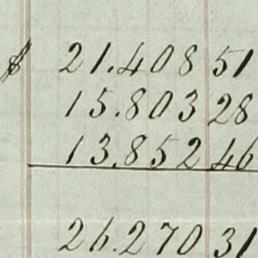 $ 21.408 51
15.803 28
13.852 46
26.270 31